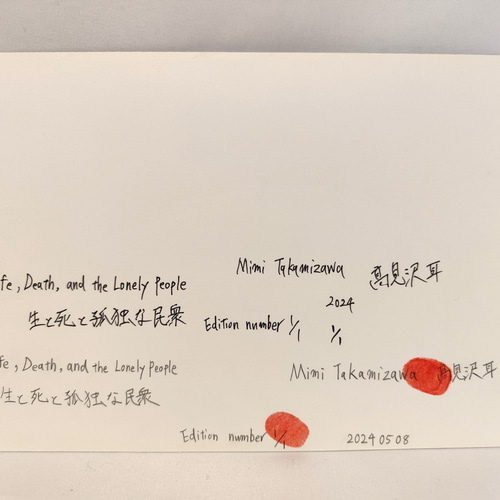 fe, Death, and the Lonely People
生と死と孤独な民衆
Mimi Takamizawa 高見沢耳
2024
Edition number 1/1 1/1
fe, Death, and the Lonely People
生と死と孤独な民衆
Mimi Takamizawa 高見沢耳
Edition number 1/1 2024 05 08